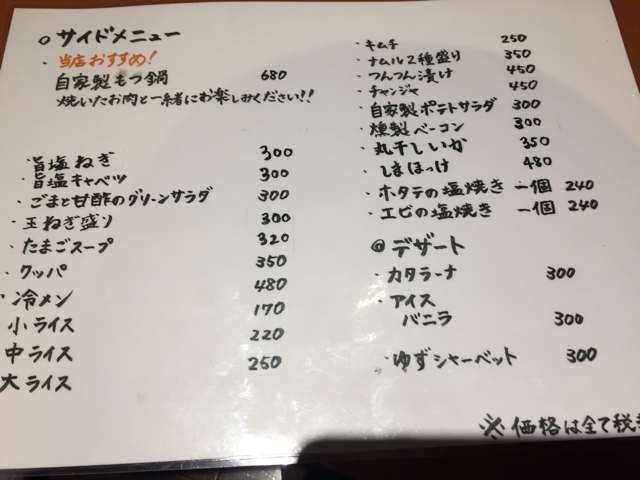 ○ サイドメニュー
・当店おすすめ!
自家製もつ鍋 680
焼いたお肉と一緒にお楽しみください!!
・旨塩ねぎ 300
・旨塩キャベツ 300
・ごまと甘酢のグリーンサラダ 300
・玉ねぎ盛り 300
・たまごスープ 320
・クッパ 350
・冷メン 480
小ライス 170
中ライス 220
大ライス 250
・キムチ 250
・ナムル2種盛り 350
・つんつん漬け 450
・チャンジャ 450
・自家製ポテトサラダ 300
・燻製ベーコン 300
・丸干しいか 350
・しまほっけ 480
・ホタテの塩焼き 一個 240
・エビの塩焼き 一個 240
◎ デザート
・カタラーナ 300
・アイス
バニラ 300
・ゆずシャーベット 300
※価格は全て税